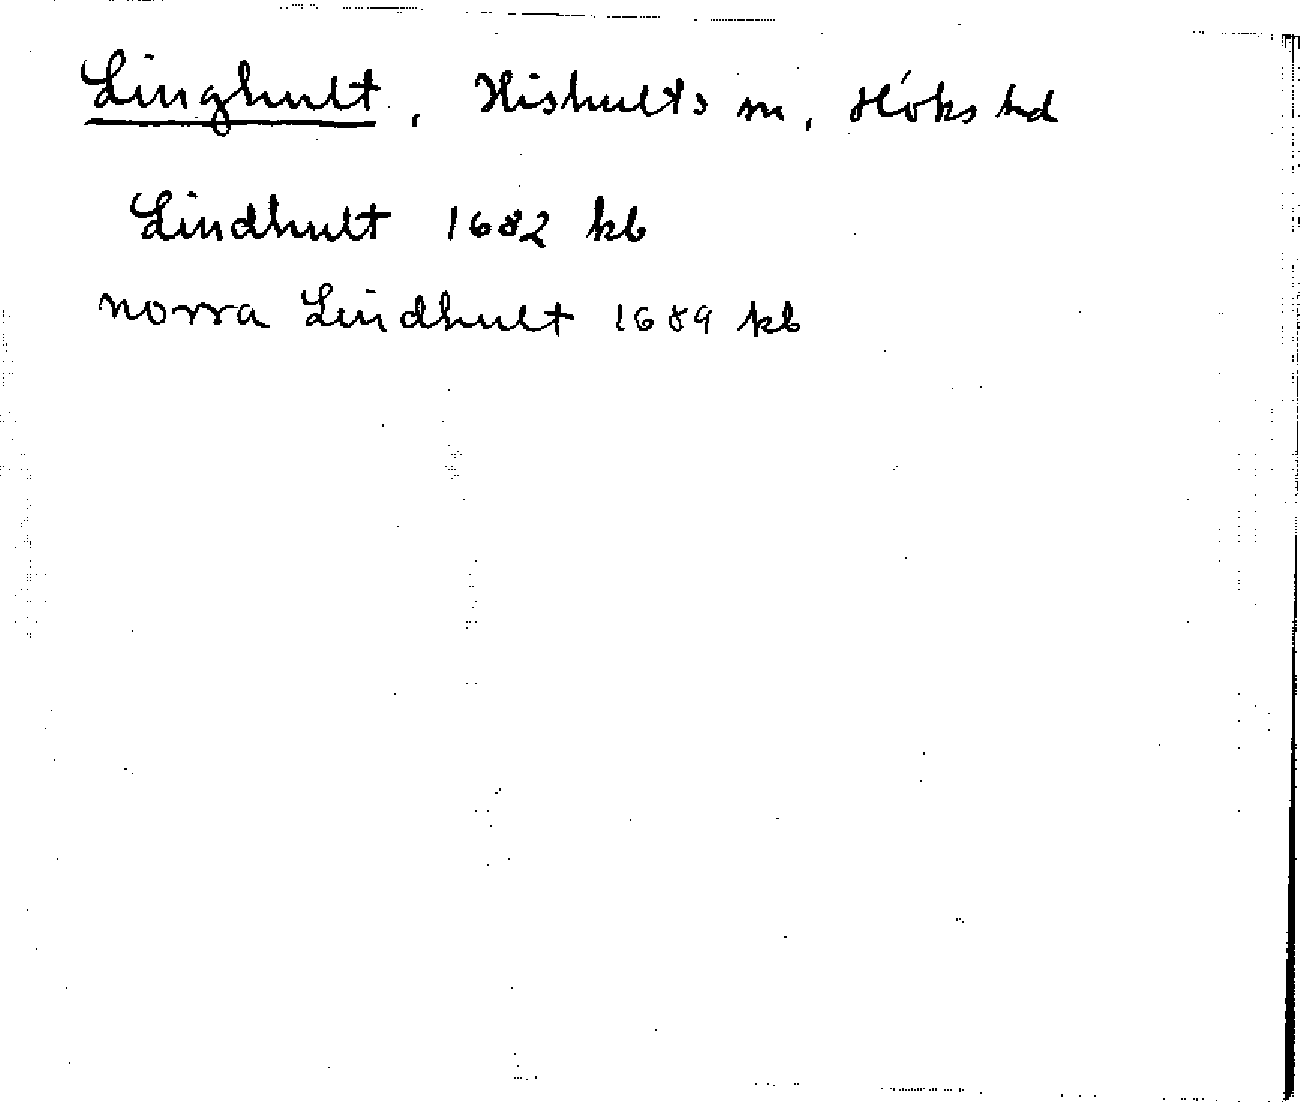 Linghult, Hishults sn, Höks hd
Lindhult 1682 kb
norra Lindhult 1689 kb